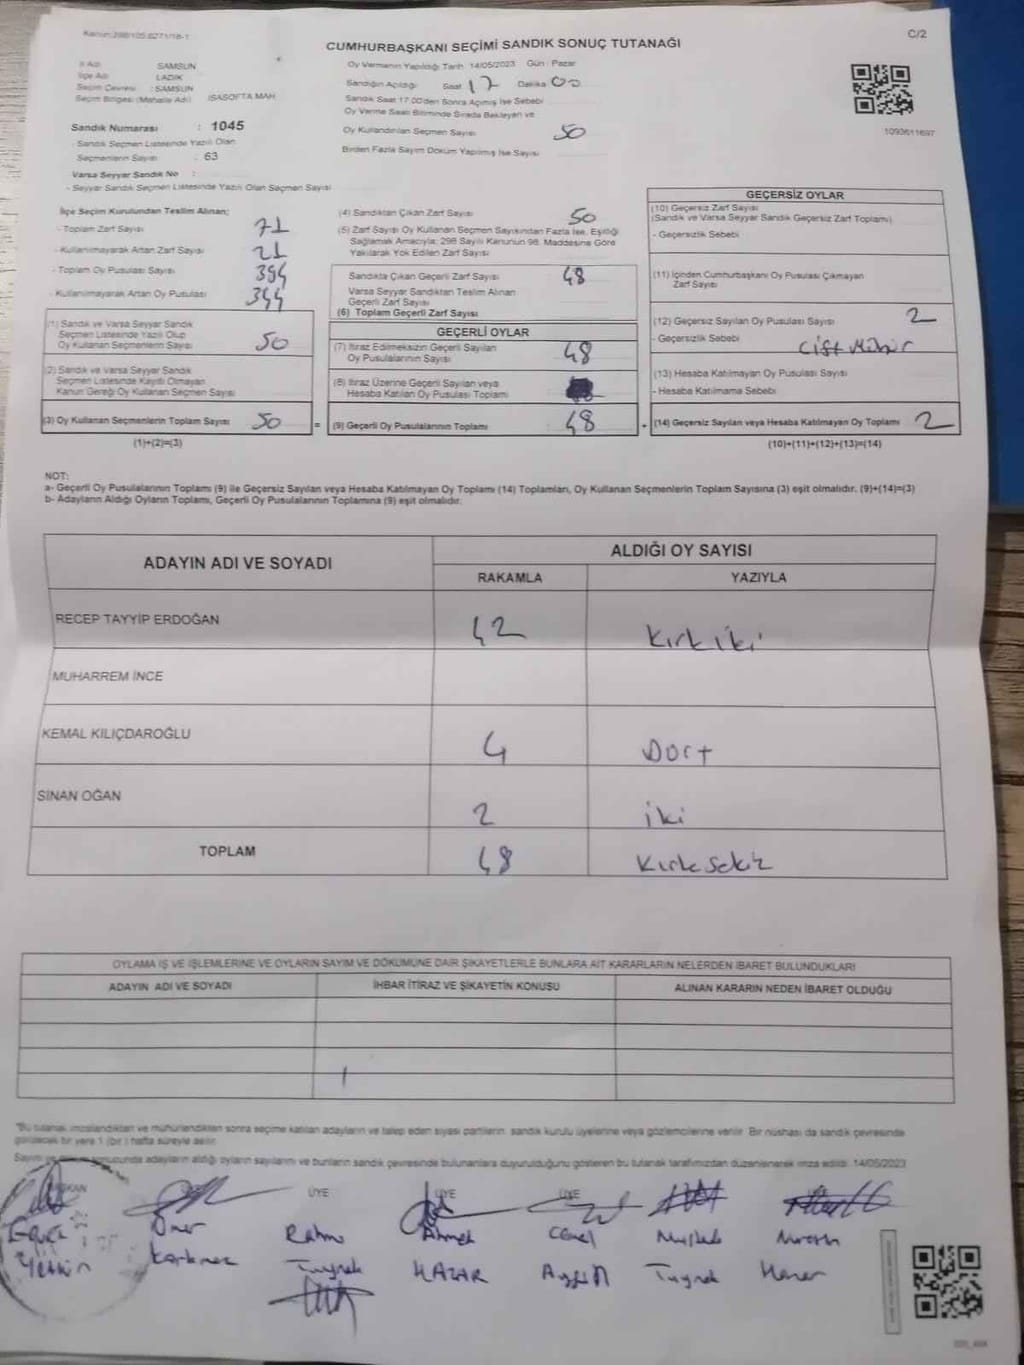 C/2
CUMHURBAŞKANI SEÇİMİ SANDIK SONUÇ TUTANAĞI
İl Adı SAMSUN
İlçe Adı LADİK
Seçim Çevresi : SAMSUN
Seçim Bölgesi (Mahalle Adı) İSASOFTA MAH.
Sandık Numarası : 1045
- Sandık Seçmen Listesinde Yazılı Olan
Seçmenlerin Sayısı : 63
Varsa Seyyar Sandık No :
- Seyyar Sandık Seçmen Listesinde Yazılı Olan Seçmen Sayısı
Oy Vermenin Yapıldığı Tarih: 14/05/2023 Gün : Pazar
Sandığın Açıldığı Saat 17 Dakika 00
Sandık Saat 17.00'den Sonra Açılmış İse Sebebi
Oy Verme Saati Bitiminde Sırada Bekleyen ve
Oy Kullandırılan Seçmen Sayısı 50
Birden Fazla Sayım Döküm Yapılmış İse Sayısı
1093611697
İlçe Seçim Kurulundan Teslim Alınan;
- Toplam Zarf Sayısı 71
- Kullanılmayarak Artan Zarf Sayısı 21
- Toplam Oy Pusulası Sayısı 394
- Kullanılmayarak Artan Oy Pusulası 344
(1) Sandık ve Varsa Seyyar Sandık
Seçmen Listesinde Yazılı Olup
Oy Kullanan Seçmenlerin Sayısı 50
(2) Sandık ve Varsa Seyyar Sandık
Seçmen Listesinde Kayıtlı Olmayan
Kanun Gereği Oy Kullanan Seçmen Sayısı
(3) Oy Kullanan Seçmenlerin Toplam Sayısı 50 =
(1)+(2)=(3)
(4) Sandıktan Çıkan Zarf Sayısı 50
(5) Zarf Sayısı Oy Kullanan Seçmen Sayısından Fazla İse, Eşitliği
Sağlamak Amacıyla; 298 Sayılı Kanunun 98. Maddesine Göre
Yakılarak Yok Edilen Zarf Sayısı
Sandıkta Çıkan Geçerli Zarf Sayısı 48
Varsa Seyyar Sandıktan Teslim Alınan
Geçerli Zarf Sayısı
(6) Toplam Geçerli Zarf Sayısı
GEÇERLİ OYLAR
(7) İtiraz Edilmeksizin Geçerli Sayılan
Oy Pusulalarının Sayısı 48
(8) İtiraz Üzerine Geçerli Sayılan veya
Hesaba Katılan Oy Pusulası Toplamı
(9) Geçerli Oy Pusulalarının Toplamı 48 +
GEÇERSİZ OYLAR
(10) Geçersiz Zarf Sayısı
(Sandık ve Varsa Seyyar Sandık Geçersiz Zarf Toplamı)
- Geçersizlik Sebebi
(11) İçinden Cumhurbaşkanı Oy Pusulası Çıkmayan
Zarf Sayısı
(12) Geçersiz Sayılan Oy Pusulası Sayısı 2
- Geçersizlik Sebebi Çift Mühür
(13) Hesaba Katılmayan Oy Pusulası Sayısı
- Hesaba Katılmama Sebebi
(14) Geçersiz Sayılan veya Hesaba Katılmayan Oy Toplamı 2
(10)+(11)+(12)+(13)=(14)
NOT:
a- Geçerli Oy Pusulalarının Toplamı (9) ile Geçersiz Sayılan veya Hesaba Katılmayan Oy Toplamı (14) Toplamları, Oy Kullanan Seçmenlerin Toplam Sayısına (3) eşit olmalıdır. (9)+(14)=(3)
b- Adayların Aldığı Oyların Toplamı, Geçerli Oy Pusulalarının Toplamına (9) eşit olmalıdır.
ADAYIN ADI VE SOYADI ALDIĞI OY SAYISI
RAKAMLA YAZIYLA
RECEP TAYYİP ERDOĞAN 42 Kırk iki
MUHARREM İNCE
KEMAL KILIÇDAROĞLU 4 Dört
SİNAN OĞAN 2 iki
TOPLAM 48 Kırksekiz
OYLAMA İŞ VE İŞLEMLERİNE VE OYLARIN SAYIM VE DÖKÜMÜNE DAİR ŞİKAYETLERLE BUNLARA AİT KARARLARIN NELERDEN İBARET BULUNDUKLARI
ADAYIN ADI VE SOYADI İHBAR İTİRAZ VE ŞİKAYETİN KONUSU ALINAN KARARIN NEDEN İBARET OLDUĞU
"Bu tutanak imzalandıktan ve mühürlendikten sonra seçime katılan adayların ve talep eden siyasi partilerin, sandık kurulu üyelerine veya gözlemcilerine verilir. Bir nüshası da sandık çevresinde
görülecek bir yere 1 (bir) hafta süreyle asılır.
sonucunda adayların aldığı oyların sayılarını ve bunların sandık çevresinde bulunanlara duyurulduğunu gösteren bu tutanak tarafımızdan düzenlenerek imza edildi. 14/05/2023
ÜYE ÜYE ÜYE
Ömer Ahmet Cemal
Yetkin Korkmaz HAZAR